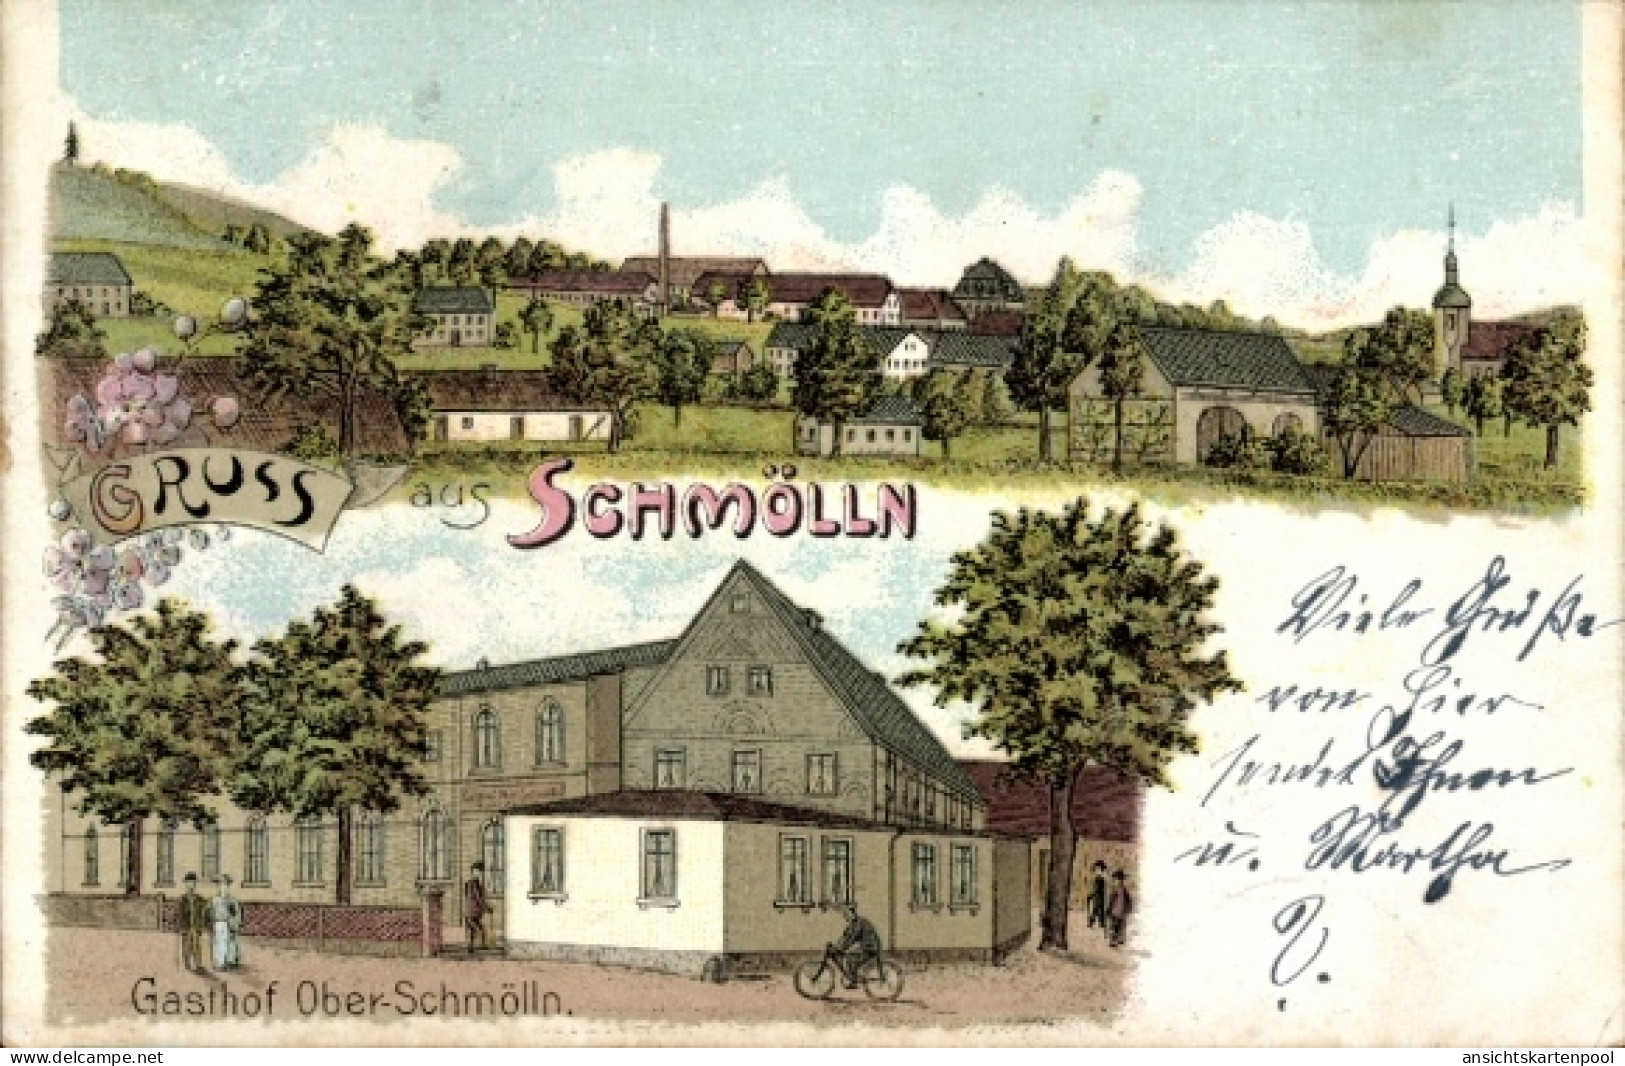 GRUSS aus SCHMÖLLN
Viele Grüße
von hier
sendet Ihnen
u. Martha
Gasthof Ober-Schmölln.
www.ansichtskartenpool.de
ansichtskartenpool